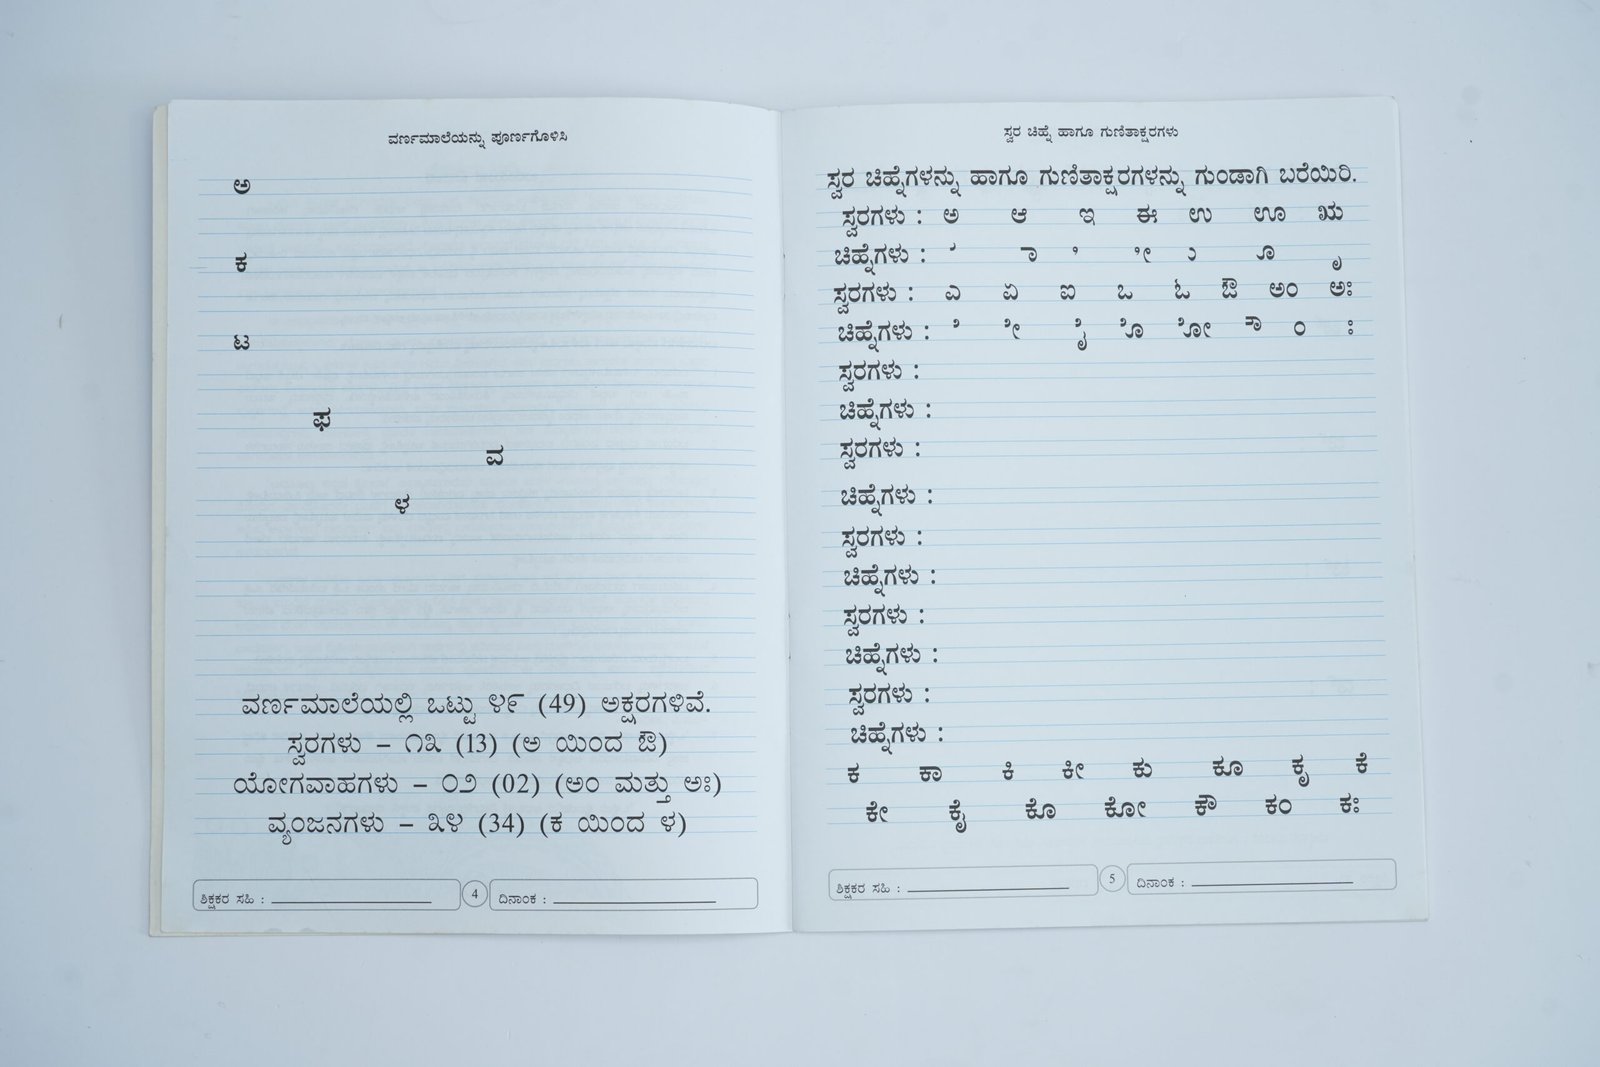 ವರ್ಣಮಾಲೆಯನ್ನು ಪೂರ್ಣಗೊಳಿಸಿ
ಅ
ಕ
ಟ
ಫ
ವ
ಳ
ವರ್ಣಮಾಲೆಯಲ್ಲಿ ಒಟ್ಟು ೪೯ (49) ಅಕ್ಷರಗಳಿವೆ.
ಸ್ವರಗಳು – ೧೩ (13) (ಅ ಯಿಂದ ಔ)
ಯೋಗವಾಹಗಳು – ೦೨ (02) (ಅಂ ಮತ್ತು ಅಃ)
ವ್ಯಂಜನಗಳು – ೩೪ (34) (ಕ ಯಿಂದ ಳ)
ಶಿಕ್ಷಕರ ಸಹಿ : 4 ದಿನಾಂಕ :
ಸ್ವರ ಚಿಹ್ನೆ ಹಾಗೂ ಗುಣಿತಾಕ್ಷರಗಳು
ಸ್ವರ ಚಿಹ್ನೆಗಳನ್ನು ಹಾಗೂ ಗುಣಿತಾಕ್ಷರಗಳನ್ನು ಗುಂಡಾಗಿ ಬರೆಯಿರಿ.
ಸ್ವರಗಳು : ಅ ಆ ಇ ಈ ಉ ಊ ಋ
ಚಿಹ್ನೆಗಳು : ಾ ಿ ೀ ು ೂ ೃ
ಸ್ವರಗಳು : ಎ ಏ ಐ ಒ ಓ ಔ ಅಂ ಅಃ
ಚಿಹ್ನೆಗಳು : ೆ ೇ ೈ ೊ ೋ ೌ ಂ ಃ
ಸ್ವರಗಳು :
ಚಿಹ್ನೆಗಳು :
ಸ್ವರಗಳು :
ಚಿಹ್ನೆಗಳು :
ಸ್ವರಗಳು :
ಚಿಹ್ನೆಗಳು :
ಸ್ವರಗಳು :
ಚಿಹ್ನೆಗಳು :
ಸ್ವರಗಳು :
ಚಿಹ್ನೆಗಳು :
ಕ ಕಾ ಕಿ ಕೀ ಕು ಕೂ ಕೃ ಕೆ
ಕೇ ಕೈ ಕೊ ಕೋ ಕೌ ಕಂ ಕಃ
ಶಿಕ್ಷಕರ ಸಹಿ : 5 ದಿನಾಂಕ :